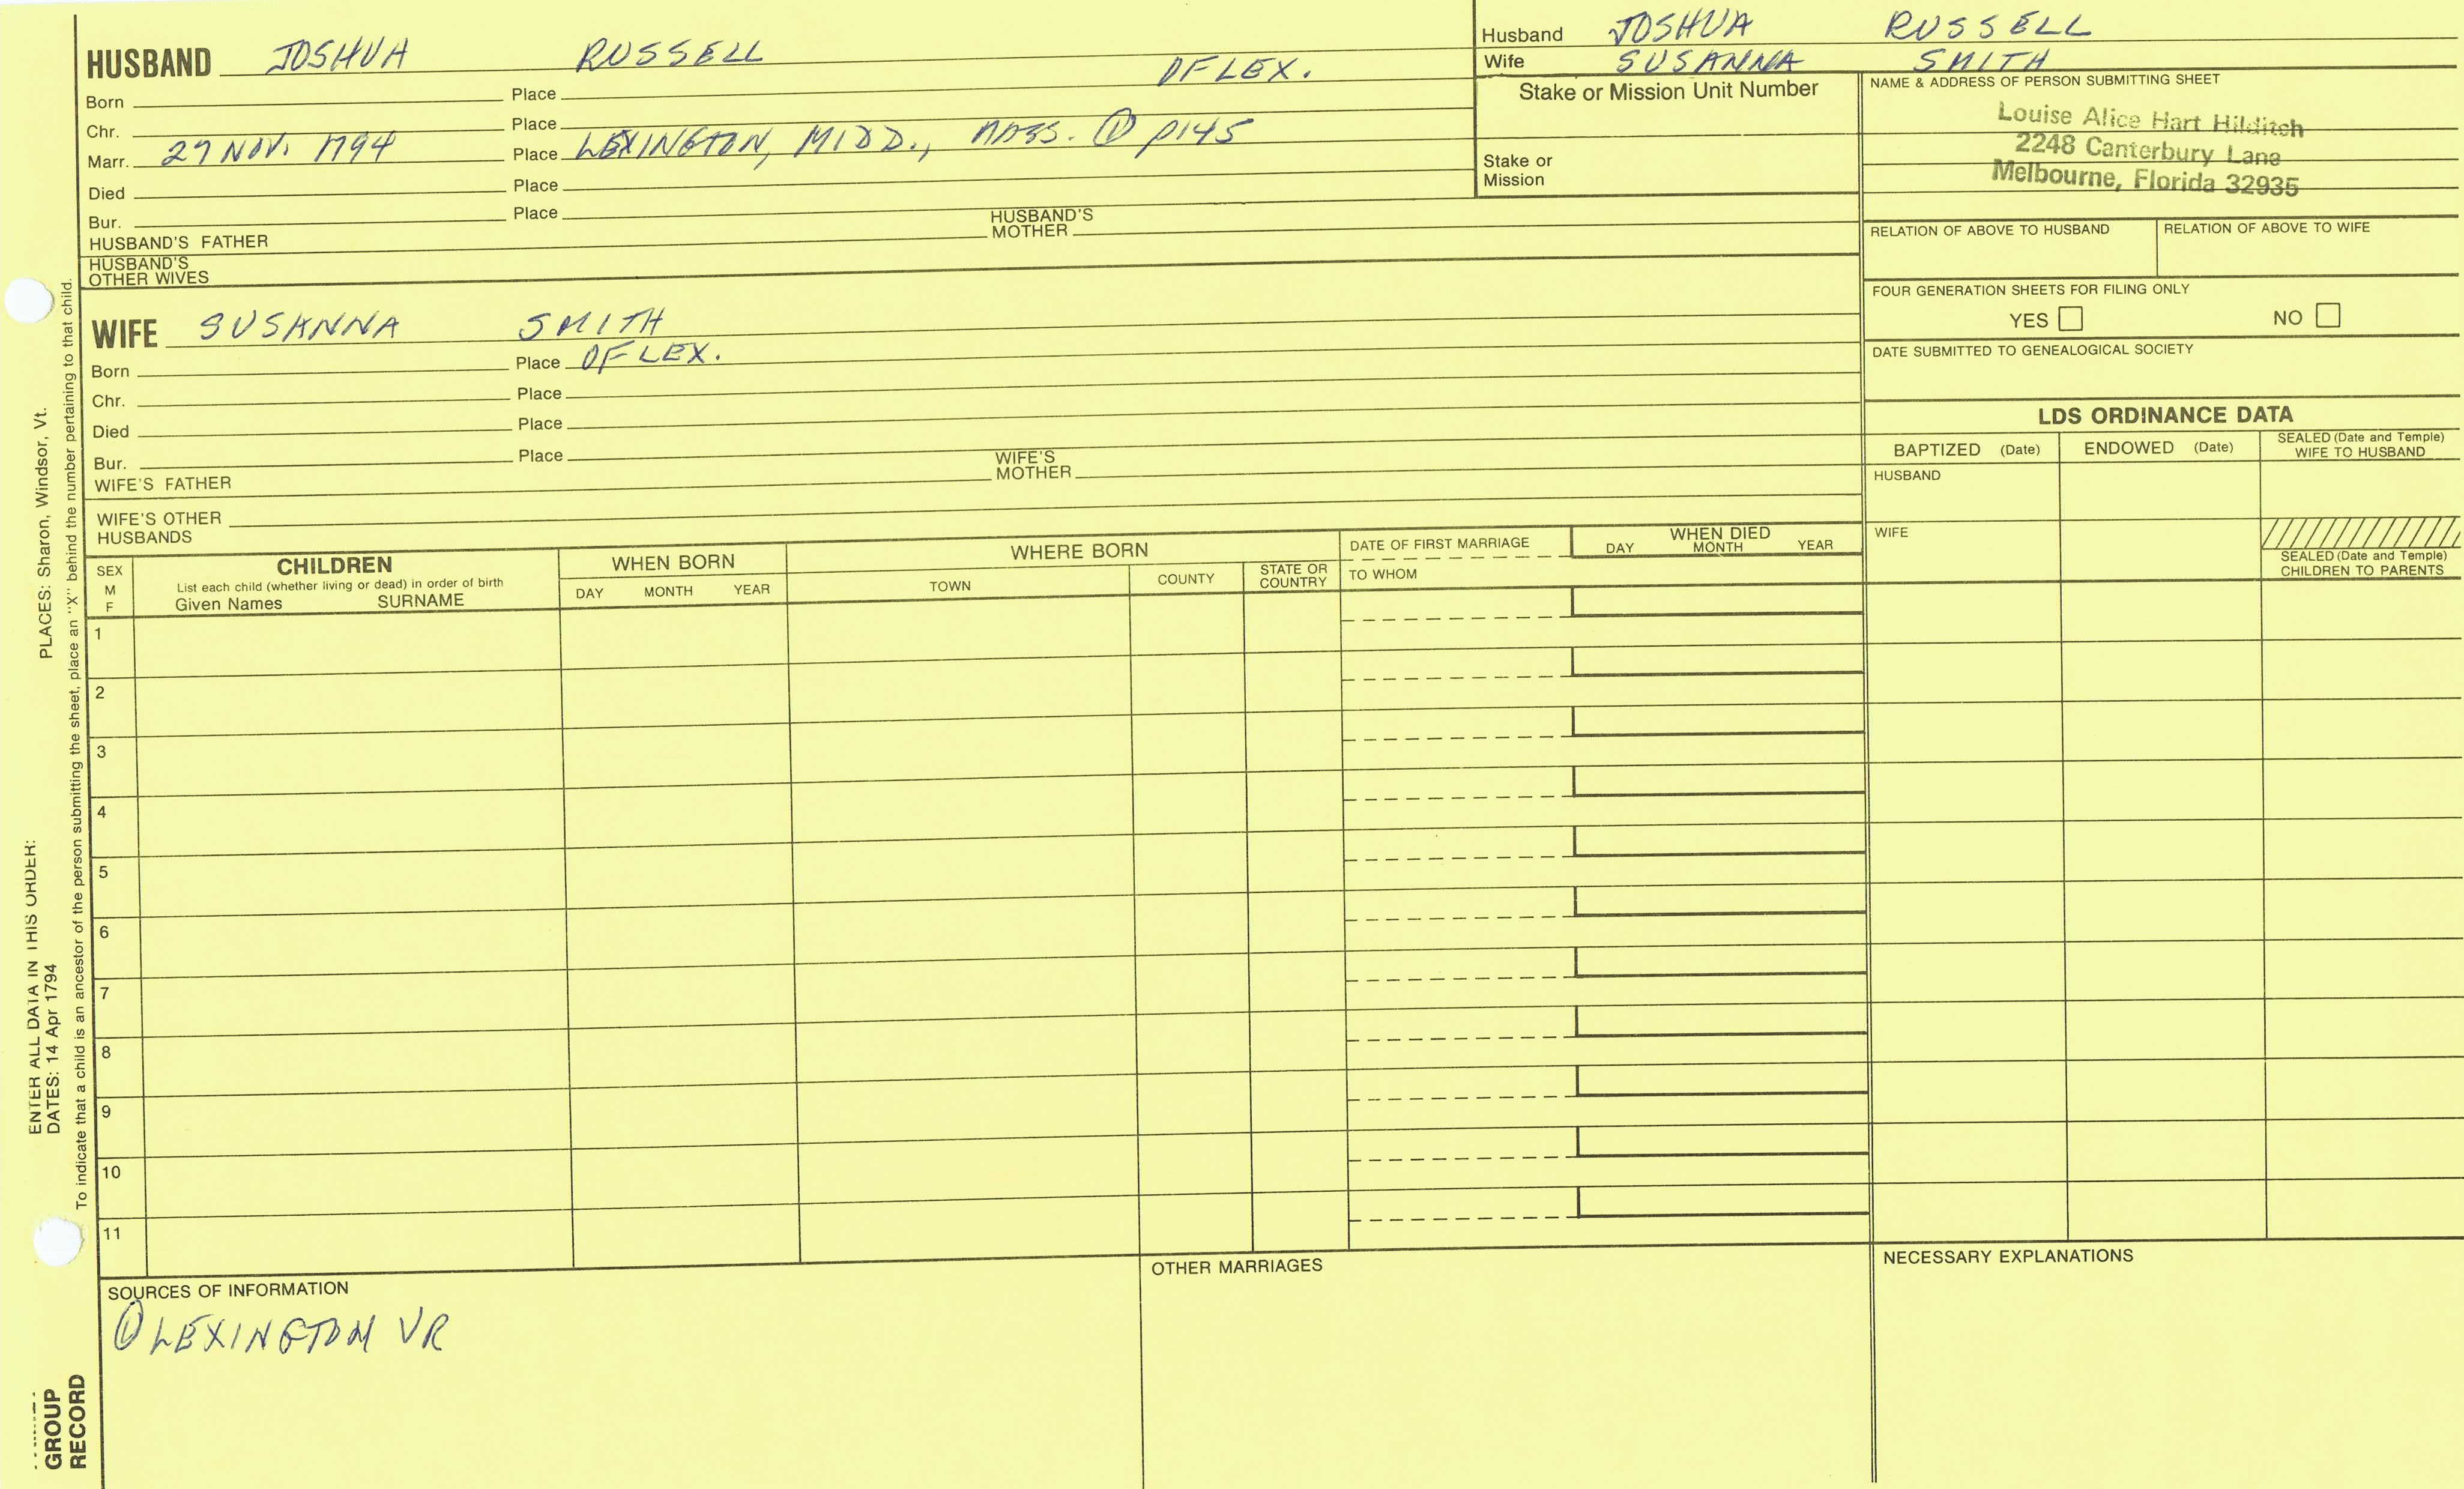 HUSBAND JOSHUA RUSSELL OF LEX.
Born Place
Chr. Place
Marr. 27 NOV. 1794 Place LEXINGTON, MIDD., MASS. ① p145
Died Place
Bur. Place
HUSBAND'S FATHER HUSBAND'S MOTHER
HUSBAND'S
OTHER WIVES
WIFE SUSANNA SMITH
Born Place OF LEX.
Chr. Place
Died Place
Bur. Place
WIFE'S FATHER WIFE'S MOTHER
WIFE'S OTHER
HUSBANDS
Husband JOSHUA RUSSELL
Wife SUSANNA SMITH
Stake or Mission Unit Number
Stake or
Mission
NAME & ADDRESS OF PERSON SUBMITTING SHEET
Louise Alice Hart Hilditch
2248 Canterbury Lane
Melbourne, Florida 32935
RELATION OF ABOVE TO HUSBAND RELATION OF ABOVE TO WIFE
FOUR GENERATION SHEETS FOR FILING ONLY
YES NO
DATE SUBMITTED TO GENEALOGICAL SOCIETY
LDS ORDINANCE DATA
BAPTIZED (Date) ENDOWED (Date) SEALED (Date and Temple) WIFE TO HUSBAND
HUSBAND
WIFE
SEALED (Date and Temple)
CHILDREN TO PARENTS
SEX
M
F
CHILDREN
List each child (whether living or dead) in order of birth
Given Names SURNAME
WHEN BORN
DAY MONTH YEAR
WHERE BORN
TOWN COUNTY STATE OR COUNTRY
DATE OF FIRST MARRIAGE
TO WHOM
WHEN DIED
DAY MONTH YEAR
1
2
3
4
5
6
7
8
9
10
11
SOURCES OF INFORMATION
① LEXINGTON VR
OTHER MARRIAGES
NECESSARY EXPLANATIONS
ENTER ALL DATA IN THIS ORDER:
DATES: 14 Apr 1794
PLACES: Sharon, Windsor, Vt.
To indicate that a child is an ancestor of the person submitting the sheet, place an "X" behind the number pertaining to that child.
GROUP
RECORD